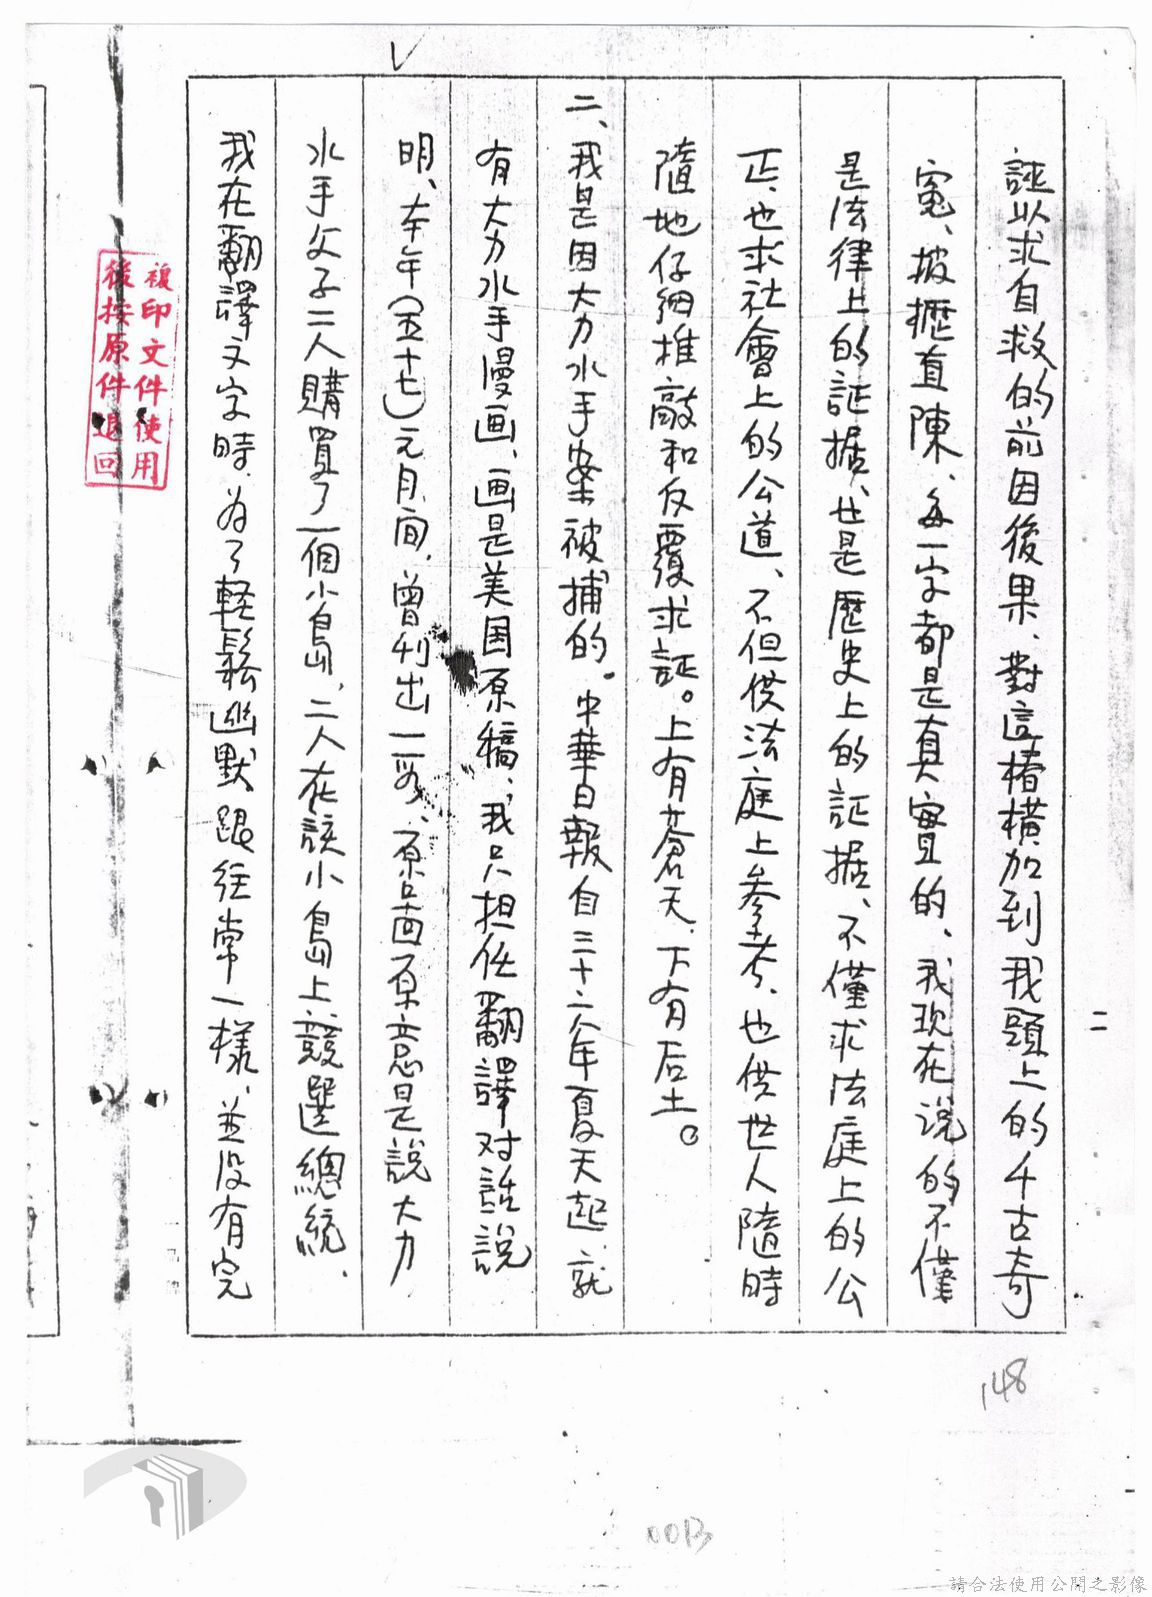 二
誣以求自救的前因後果、對這樁橫加到我頭上的千古奇
冤、披瀝直陳、每一字都是真實的、我现在说的不僅
是法律上的証据、也是歷史上的証据、不僅求法庭上的公
正、也求社會上的公道、不但供法庭上參考、也供世人隨時
隨地仔細推敲和反覆求証。上有蒼天、下有后土。
二、我是因大力水手案被捕的。中華日報自三十六年夏天起、就
有大力水手漫画、画是美国原稿、我只担任翻譯对話說
明、本年(五十七)元月间、曾刊出一则、原画原意是說大力
水手父子二人購買了一個小島、二人在該小島上競選總統、
我在翻譯文字時、为了輕鬆幽默跟往常一樣、並没有完
複印文件使用
後按原件退回
148
00B
請合法使用公開之影像